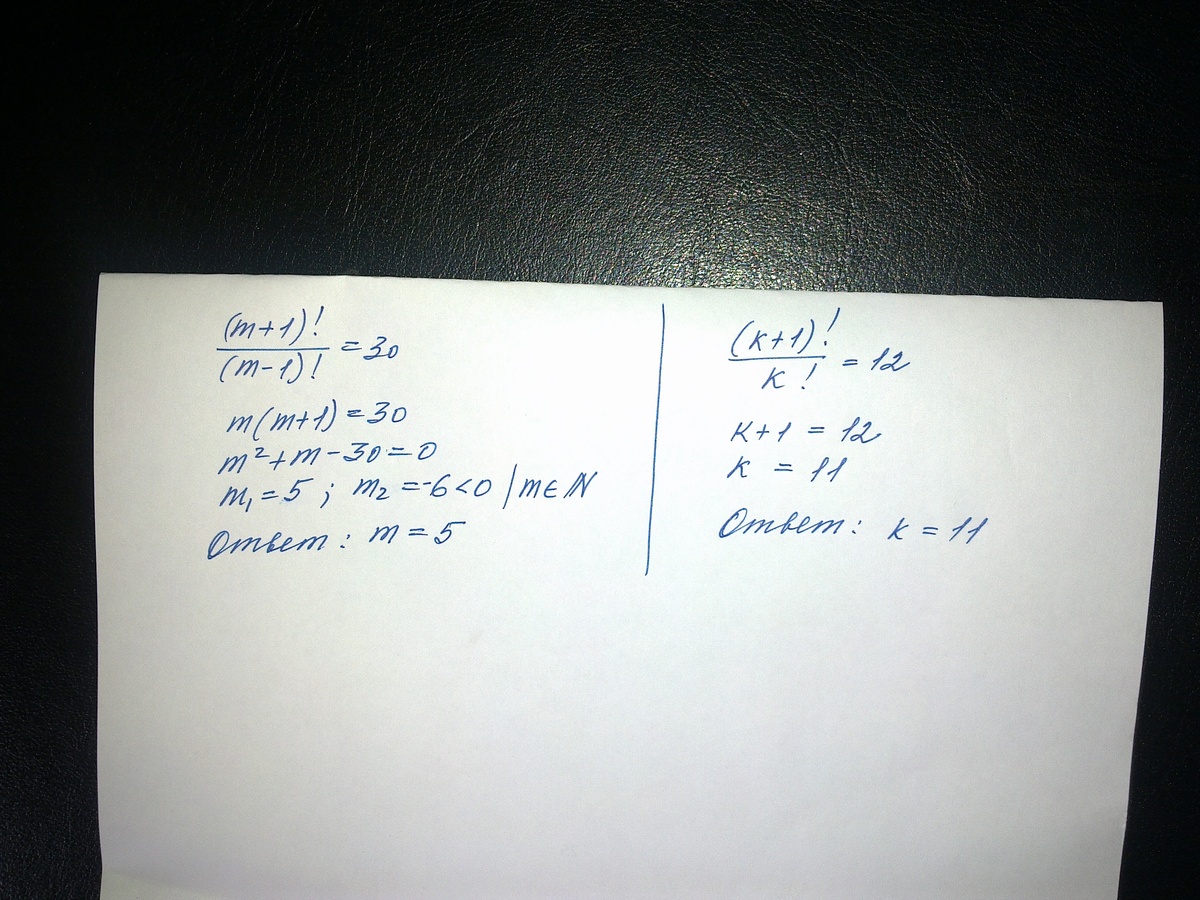 (m+1)!
(m-1)! = 30
m(m+1) = 30
m² + m - 30 = 0
m₁ = 5 ; m₂ = -6 < 0 | m ∈ ℕ
Ответ: m = 5
(k+1)!
k! = 12
k+1 = 12
k = 11
Ответ: k = 11